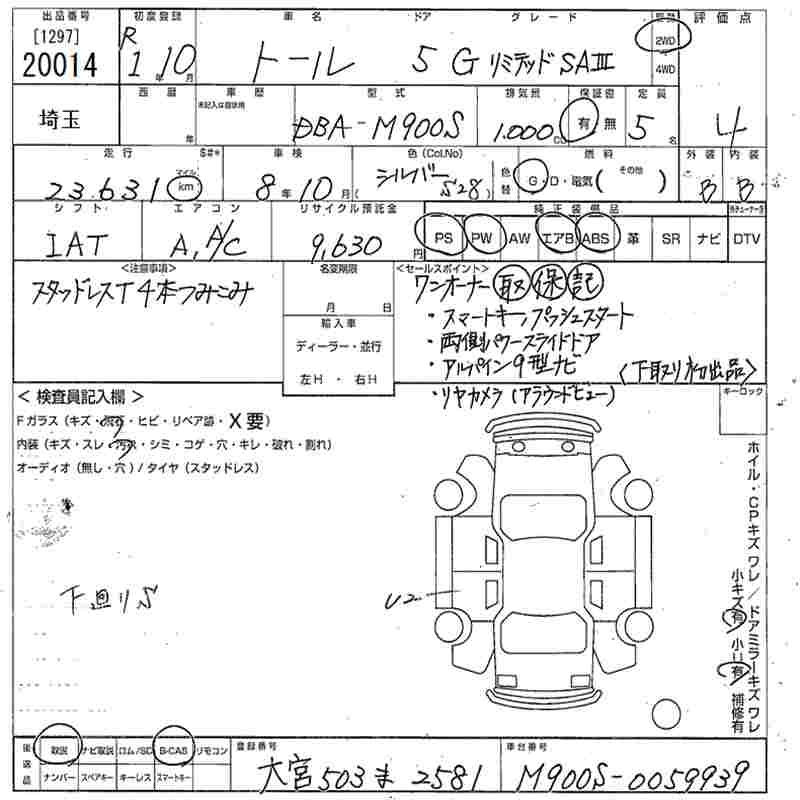 出品番号 初度登録 車名 ドア グレード 駆動 評価点
[1297] 20014 R 1年 10月 トール 5 G リミテッド SAIII 2WD 4WD
埼玉 西暦 年 車歴 未記入は自家用 型式 DBA-M900S 排気量 1.000 CC 保証書 有・無 定員 5名 4
走行 マイル km 23.631 S#* 車検 8年10月 色(Col.No) シルバー S28 色替 燃料 G・D・電気( その他 ) 外装 B 内装 B
シフト IAT エアコン A, A/C リサイクル預託金 9,630円 純正装備品 PS PW AW エアB ABS 革 SR ナビ DTV
<注意事項> 名変期限 <セールスポイント>
スタッドレスT 4本つみこみ 月 日 ワンオーナー 取 保 記
輸入車 ・スマートキー/プッシュスタート
ディーラー・並行 ・両側パワースライドドア
左H ・ 右H ・アルパイン9型ナビ <下取り初出品>
・リヤカメラ(アラウンドビュー)
キーロック
<検査員記入欄>
Fガラス(キズ・飛石・ヒビ・リペア跡・X要)
内装(キズ・スレ・汚れ・シミ・コゲ・穴・キレ・破れ・割れ)
オーディオ(無し・穴)/タイヤ(スタッドレス)
下廻りS
U2
ホイル・CPキズワレ/ドアミラーキズワレ
小キズ有 小U有 補修有
後送品 取説 ナビ取説 ロム/SD B-CAS リモコン
ナンバー スペアキー キーレス スマートキー
登録番号 大宮 503 ま 2581
車台番号 M900S-0059939